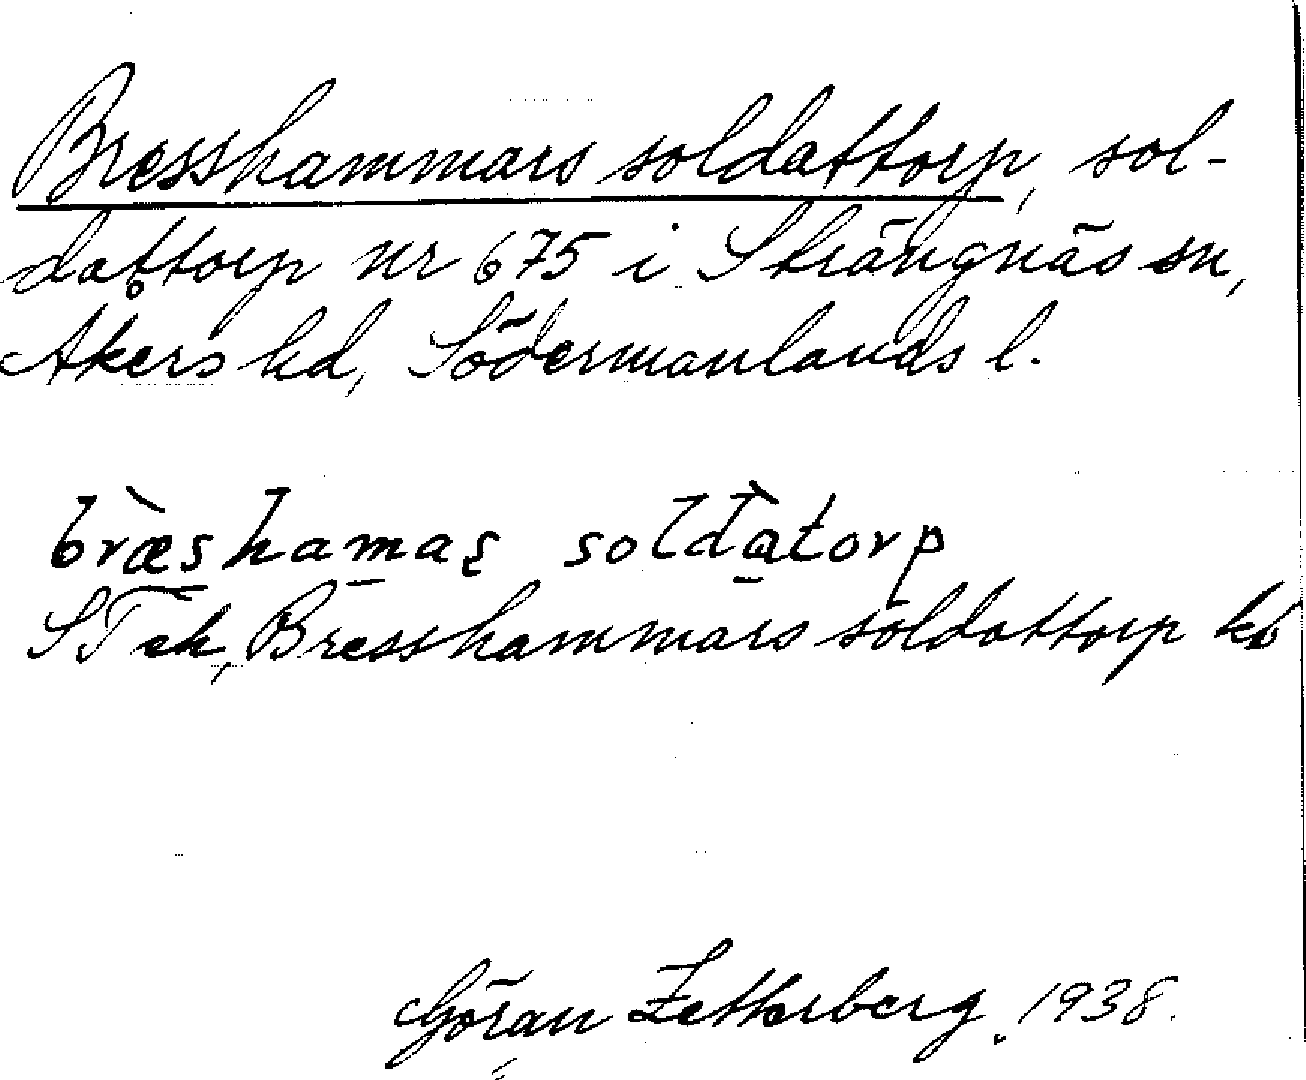 Bresshammars soldattorp, sol-
dattorp nr 675 i Strängnäs sn,
Åkers hd, Södermanlands l.
bræshamaș soldatorp
STek, Bresshammars soldattorp kb
Göran Zetterberg, 1938.